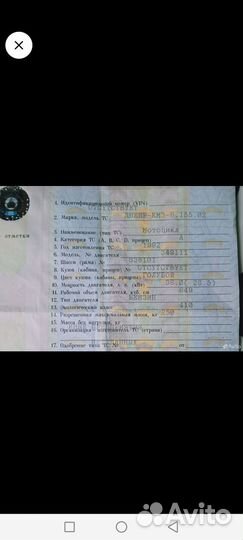 отметки
1. Идентификационный номер (VIN)
ОТСУТСТВУЕТ
2. Марка, модель ТС ДНЕПР-КМЗ-8.155.02
3. Наименование (тип ТС) Мотоцикл
4. Категория ТС (А, В, С, D, прицеп) А
5. Год изготовления ТС 1992
6. Модель, № двигателя
7. Шасси (рама) №
8. Кузов (кабина, прицеп) № ОТСУТСТВУЕТ
9. Цвет кузова (кабины, прицепа) ГОЛУБОЙ
10. Мощность двигателя, л. с. (кВт)
11. Рабочий объем двигателя, куб. см 649
12. Тип двигателя БЕНЗИН
13. Экологический класс
14. Разрешенная максимальная масса, кг 410
15. Масса без нагрузки, кг 250
16. Организация - изготовитель ТС (страна)
17. Одобрение типа ТС № от
Avito
Avito